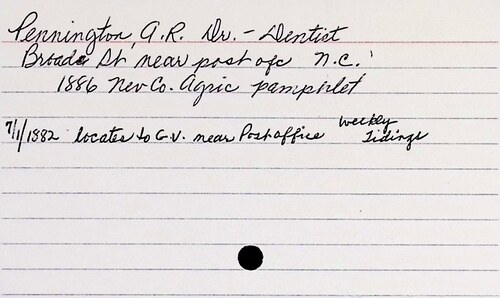 Pennington, A.R. Dr. - Dentist
Broad St, near post ofc N.C.
1886 Nev Co. Agric pamphlet
7/1/1882 locates to G.V. near Post office Weekly Tidings